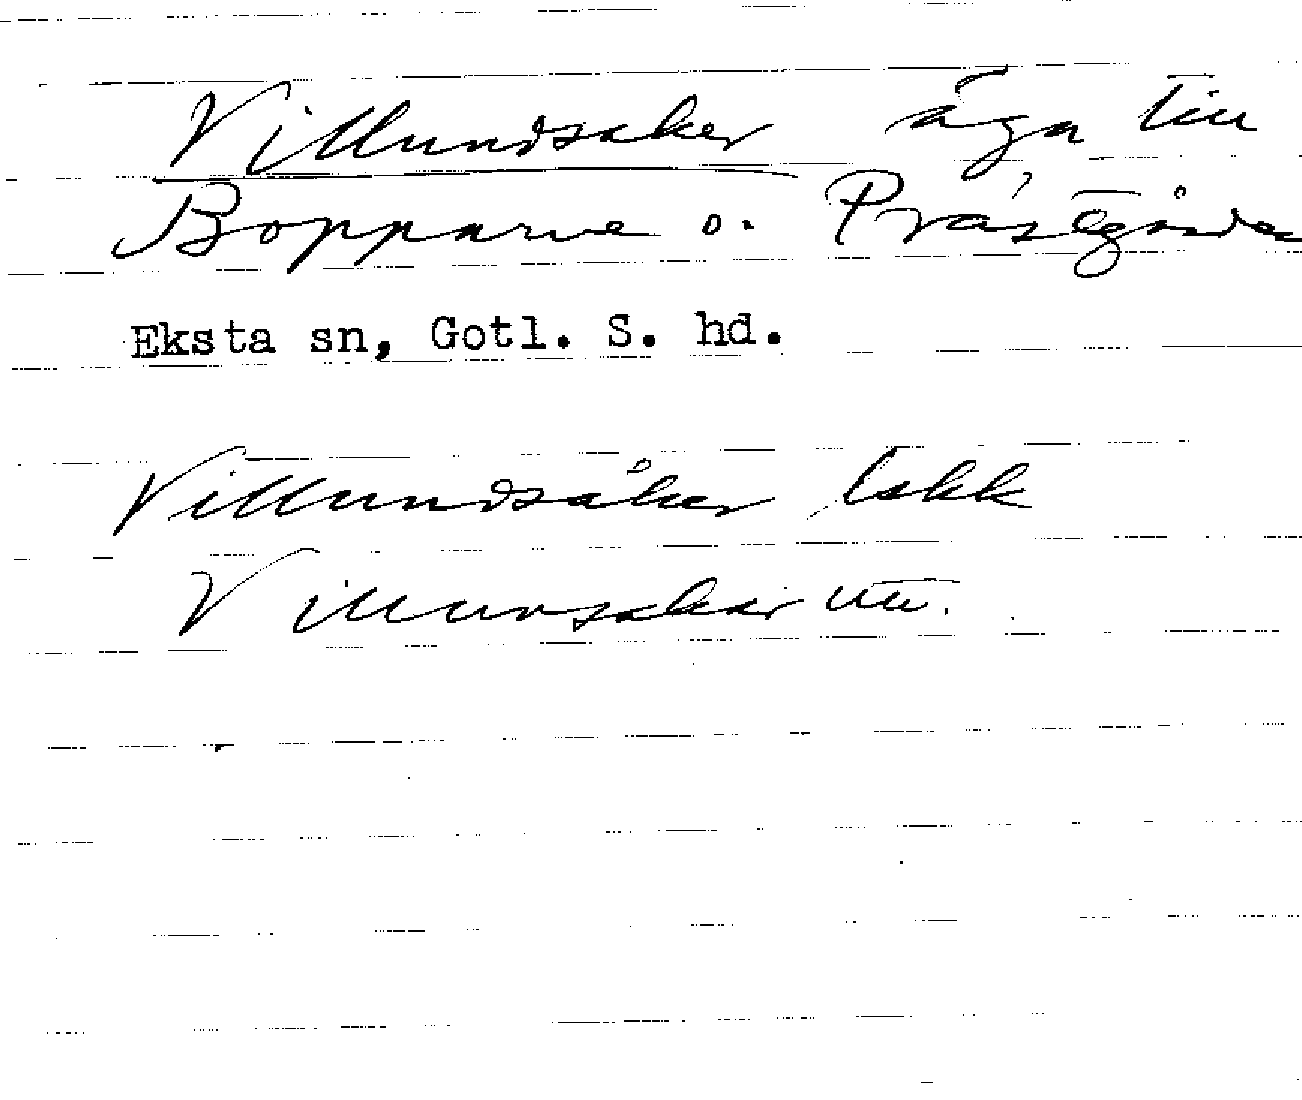 Villundsaker äga till
Bopparve o. Prästgården
Eksta sn, Gotl. S. hd.
Villundsåker lskk
Villunsakar utt.